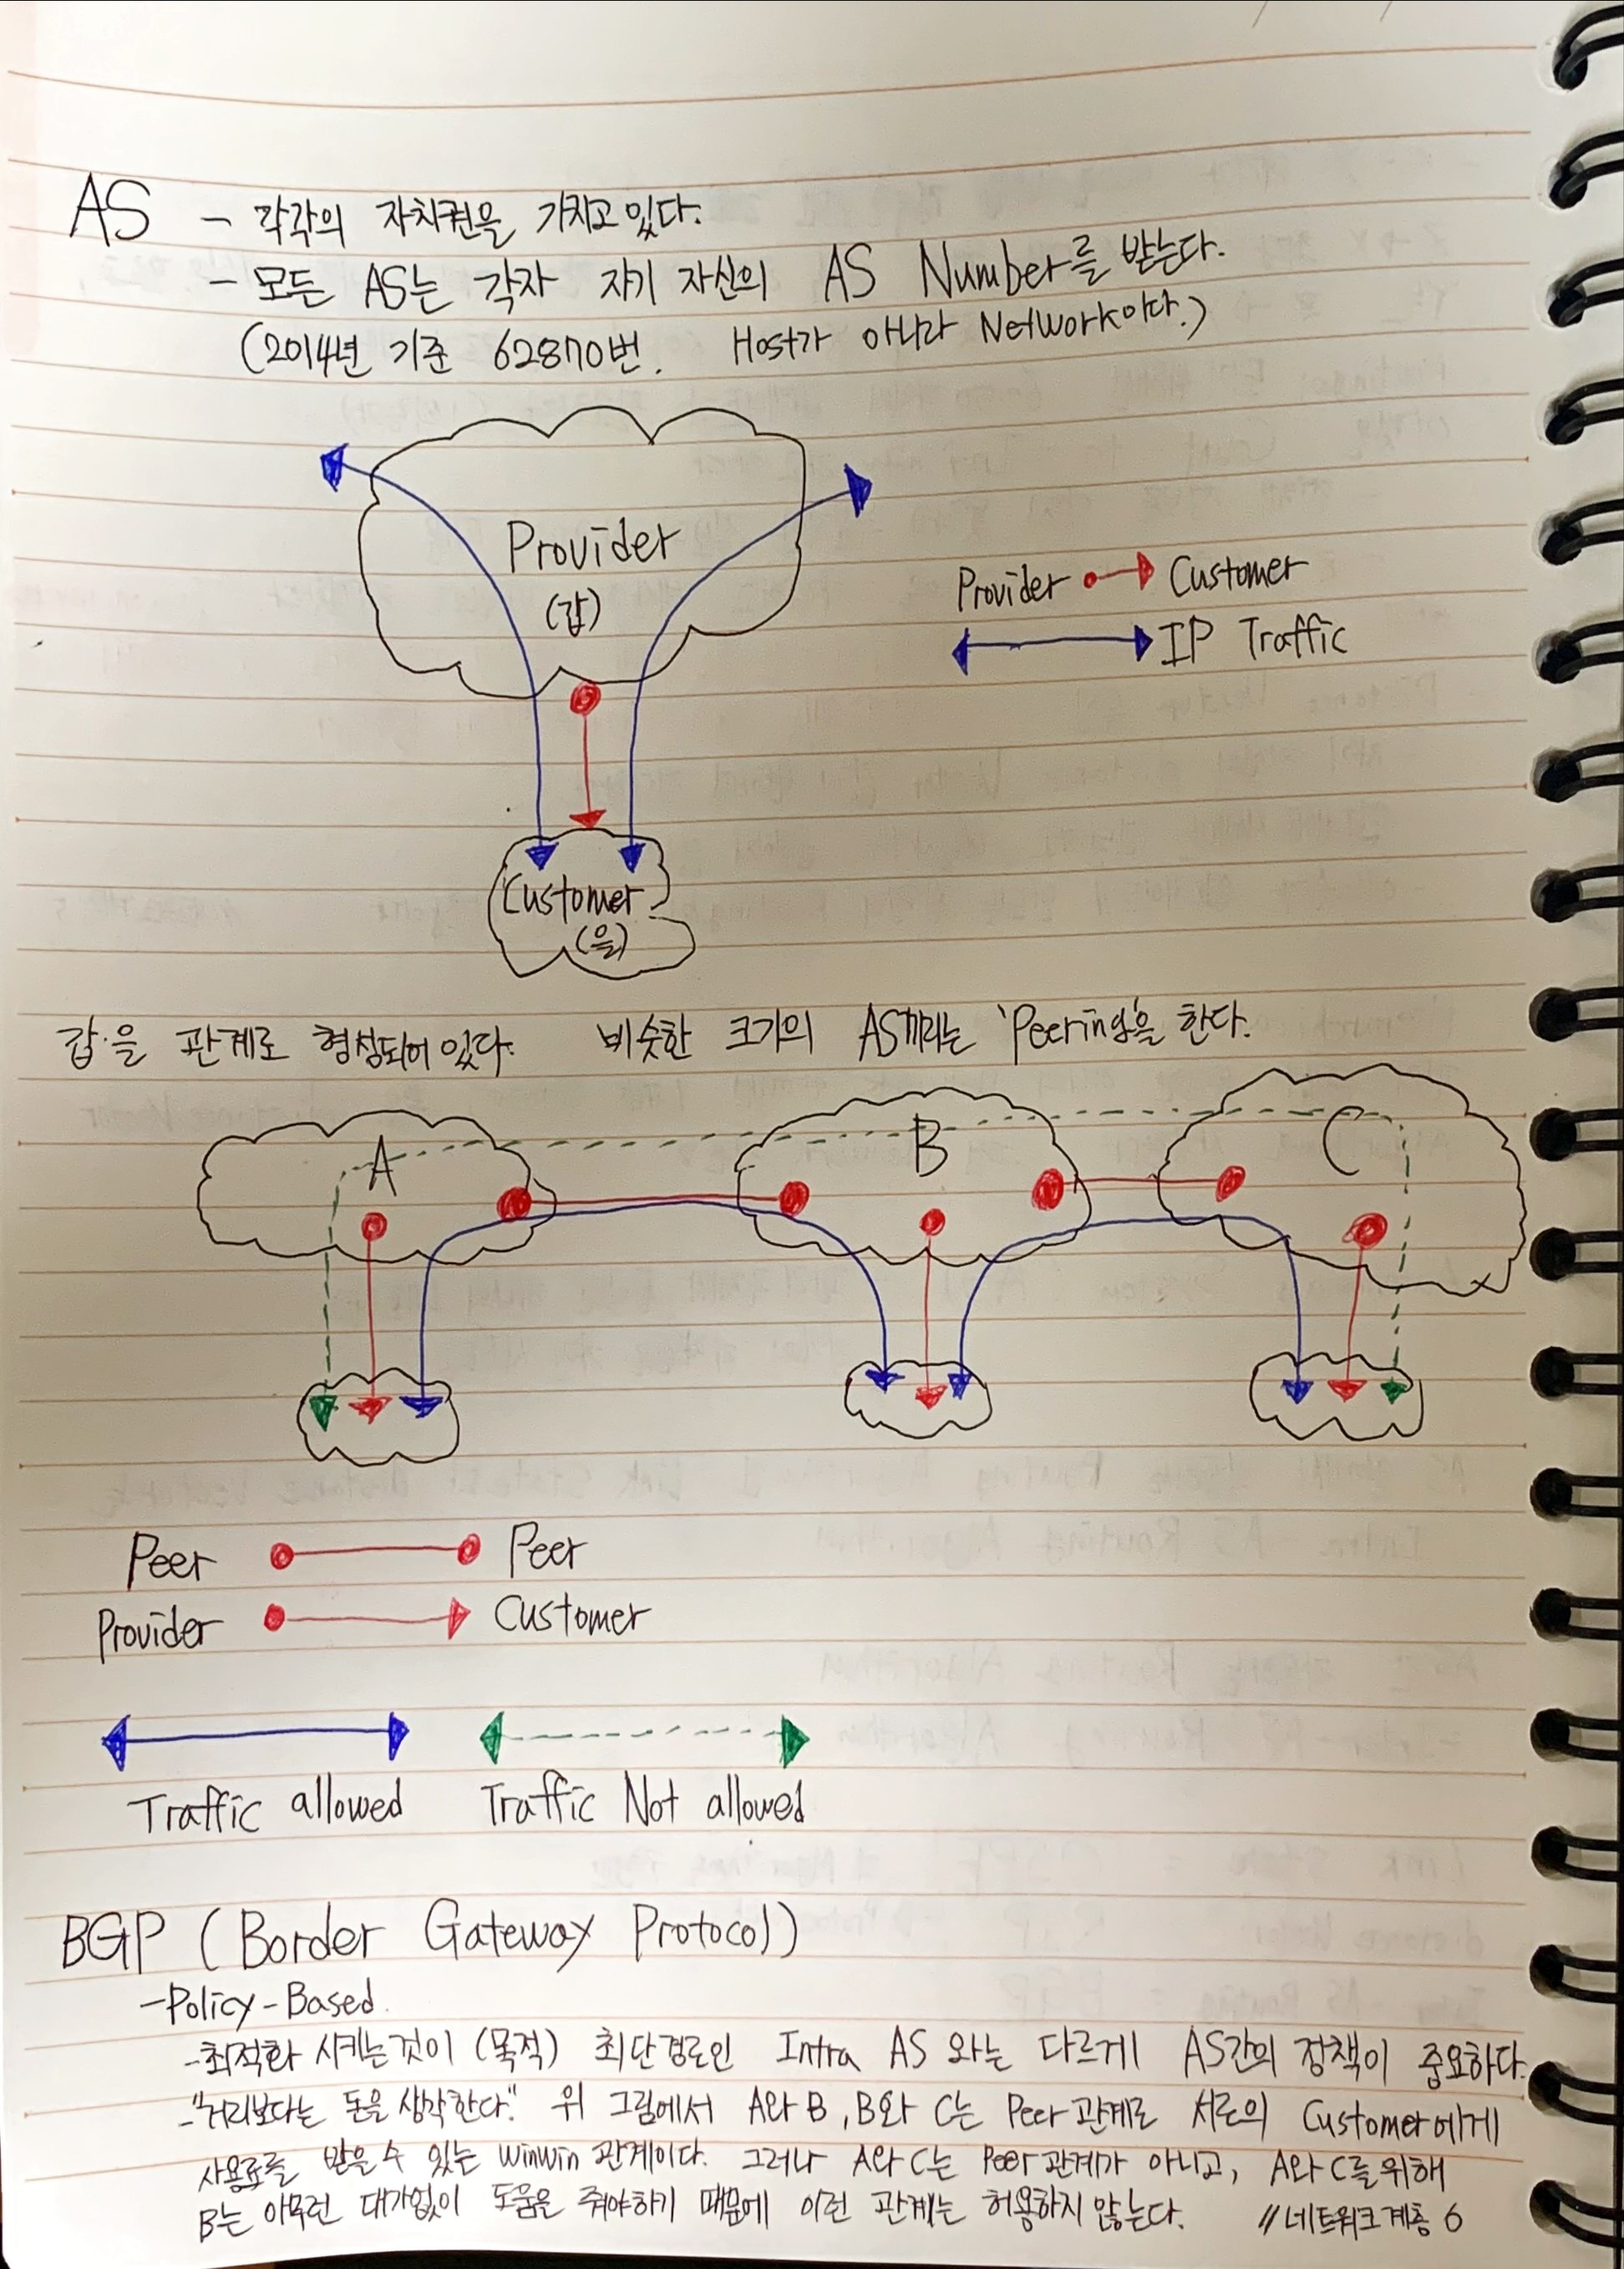 AS - 각각의 자치권을 가지고 있다.
- 모든 AS는 각자 자기 자신의 AS Number를 받는다.
(2014년 기준 62870번. Host가 아니라 Network이다.)
Provider
(갑)
Provider Customer
IP Traffic
Customer
(을)
갑·을 관계로 형성되어 있다. 비슷한 크기의 AS끼리는 'Peering'을 한다.
A B C
Peer Peer
Provider Customer
Traffic allowed Traffic Not allowed
BGP (Border Gateway Protocol)
- Policy-Based.
- 최적화 시키는것이 (목적) 최단경로인 Intra AS 와는 다르게 AS간의 정책이 중요하다.
- "거리보다는 돈을 생각한다." 위 그림에서 A와 B, B와 C는 Peer 관계로 서로의 Customer에게
사용료를 받을 수 있는 winwin 관계이다. 그러나 A와 C는 Peer 관계가 아니고, A와 C를 위해
B는 아무런 대가없이 도움을 줘야하기 때문에 이런 관계는 허용하지 않는다. // 네트워크 계층 6